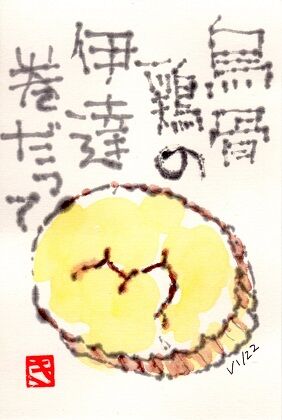 烏骨
鶏の
伊達
巻だって
VI/22